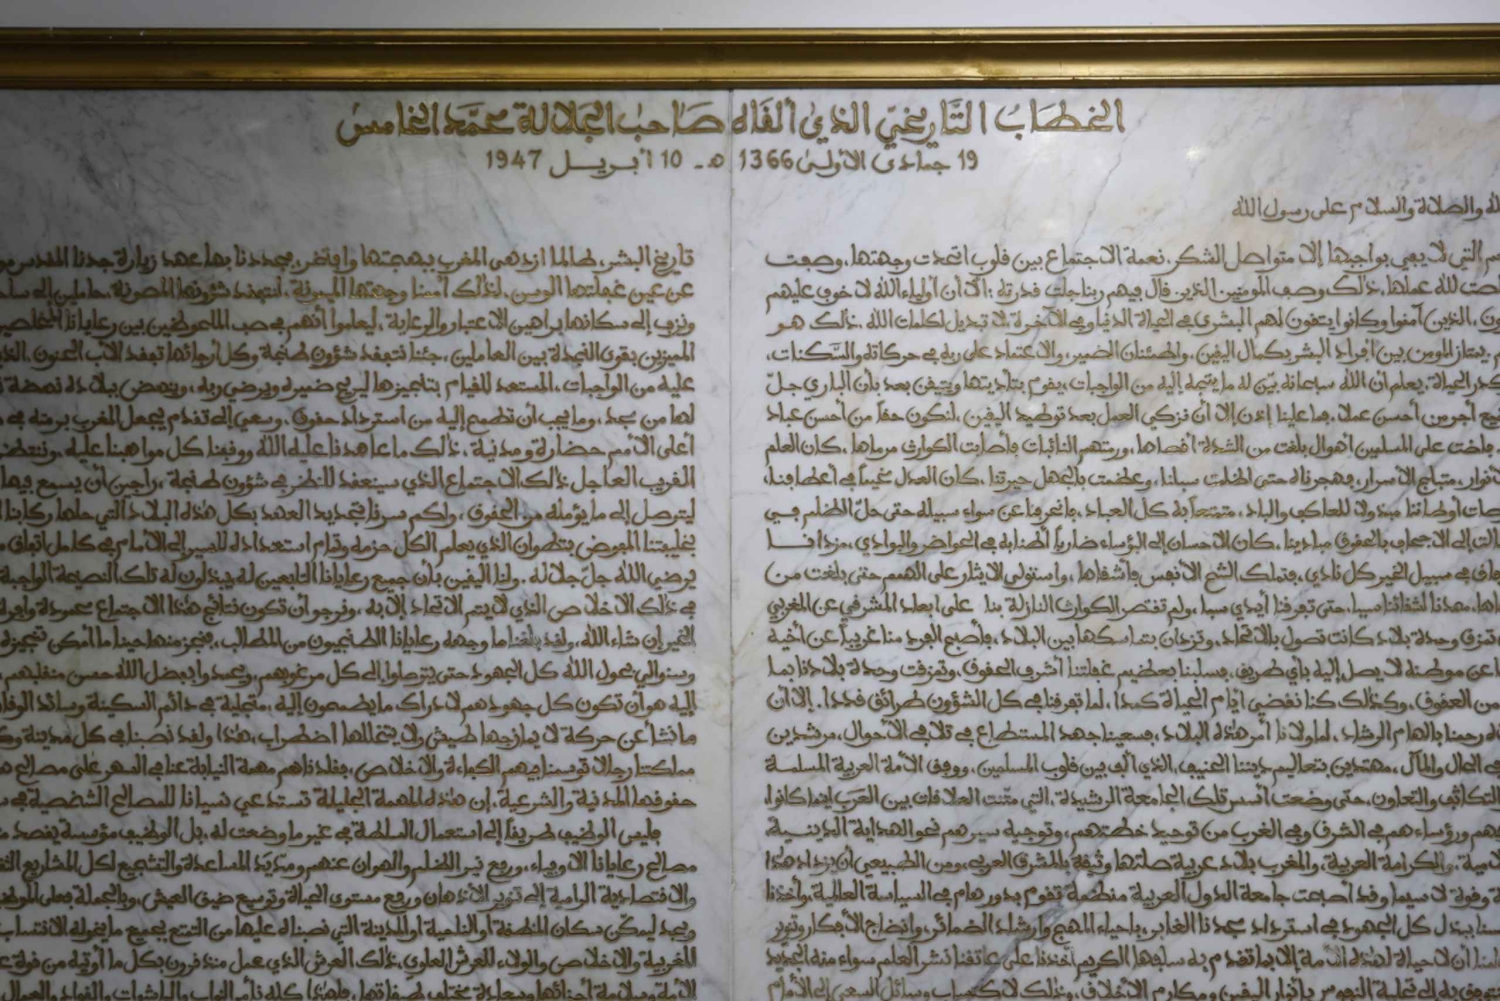 الخطاب التاريخي الذي ألقاه صاحب الجلالة محمد الخامس
19 جمادى الأولى 1366 هـ - 10 أبريل 1947
والصلاة والسلام على رسول الله
التي لا يفي بواجبها إلا متواصل الشكر، نعمة الاجتماع بين قلوب اتحدت وجهتها، وصفت
لله عملها، ذلك وصف المومنين الذين قال فيهم ربنا جلت قدرته: ألا أن أولياء الله لا خوف عليهم
الذين آمنوا وكانوا يتقون لهم البشرى في الحياة الدنيا وفي الآخرة لا تبديل لكلمات الله، ذلك هو
يمتاز المومن بين أفراد البشر بكمال اليقين، واطمئنان الضمير، والاعتماد على ربه في حركاته والسكنات،
كدر الحياة، يعلم أن الله سبحانه بين له ما يتجه إليه من الواجبات، يقوم بتأديتها ويتيقن بعد بأن الباري جل
أجر من أحسن عملا، فما علينا إذن إلا أن نزكي العمل بعد توطيد اليقين، لنكون حقا من أحسن عباد
على المسلمين أهوال بلغت من الشدة أقصاها، ورمتهم النائبات فأصابت الكوارث مرماها، كان العلم
الأسرار، فهجرناه حتى أظلمت سبلنا، وعظمت بالجهل حيرتنا، كان العدل مخيما في أعطافنا،
أوطاننا مبذولا للعاكف والباد، متمتعا به كل العباد، فانحرفنا عن سواء سبيله حتى حل الظلم في
بالحقوق مبادينا، كان الاحسان إلى البؤساء ضاربا أطنابه في الحواضر والبوادي،
في سبيل الخير كل نادي، فتملك الشح الأنفس وأشقاها، واستولى الايثار على الهمم حتى بلغت من
حتى تفرقنا أيدي سبا، ولم تقتصر الكوارث النازلة بنا على ابعاد المشرقي عن المغربي
وحدة بلاد كانت تصول بالاتحاد، وتزدان بتماسكها بين البلاد، فأصبح الفرد منا غريبا عن أخيه
عن موطنه لا يصل إليه بأي طريق، فسلبنا بعظيم غفلتنا أشرف الحقوق، وتمزقت وحدة بلادنا بما
من العقوق، وكذلك كنا نقضي أيام الحياة كمدا، لما تفرقنا في كل الشؤون طرائق قددا. إلا أن
رحمنا بالهام الرشاد، لما ولانا أمر هذه البلاد، فسعينا جهد المستطاع في تلافي الأحوال، مرشدين
الحال والمآل، مهتدين بتعاليم ديننا الحنيف، الذي ألف بين قلوب المسلمين، ووفق الأمة العربية المسلمة
والتعاون، حتى وضعت أسس تلك الجامعة الرشيدة، التي متنت العلاقات بين العرب أينما كانوا،
ورؤساءهم في الشرق وفي الغرب من توحيد خطتهم، وتوجيه سيرهم نحو الهداية الدينية
والكرامة العربية، والمغرب بلاد عربية صلتها وثيقة بالمشرق العربي، ومن الطبيعي أن يزداد هذا
وقوة لا سيما وقد أصبحت جامعة الدول العربية منظمة تقوم بدور هام في السياسة العالمية، وأخذنا
نبذل كل الجهود في استرداد مجدنا الغابر، بإحياء المنهج وارشاد الضمائر، وانضاج الأفكار وتنوير
أن لا حياة لهذه الأمة إلا بما تقدم به سلفها الكريم أخذنا على عاتقنا نشر العلم سواء منه الجديد
ومكارم الأخلاق، وذلك لاكتساب وسائل السعي إلى الأمام
تاريخ البشر، طالما ازدهى المغرب ببهجتها وافتخر، مجددنا بها عهد زيارة جدنا المقدس
ذلك أممنا وجهتها الميمونة، لنتفقد شؤونها المصونة، حاملين إلى
ونزف إلى سكانها براهين الاعتبار والرعاية، ليعلموا أنهم في صف الملحوظين بين رعايانا المخلصين
المميزين بقوى النجدة بين العاملين، جئنا نتفقد شؤون طنجة وكل أرجائها تفقد الأب الحنون،
عليه من الواجبات، المستعد للقيام بتناجيزها ليريح ضميره ويرضي ربه، وينهض ببلاده نهضة
لها من مجد، وما يجب أن تطمح إليه من استرداد حقوق، وسعي إلى تقدم يجعل المغرب برمته في
أعلى الأمم حضارة ومدنية، ذلك ما عاهدنا عليه الله ووقفنا كل مواهبنا عليه،
القريب العاجل ذلك الاجتماع الذي سينعقد للنظر في شؤون طنجة، راجين أن يسمع فيها
ليتوصل إلى ما يؤمله من الحقوق، ولكم سرنا تجديد العهد بكل هذه البلاد التي حلها ركابنا
بخليفتنا المفوض بتطوان الذي يعلم الكل حزمه وتمام استعداده للسير إلى الأمام في كامل
يرضي الله جل جلاله. ولنا اليقين بأن جميع رعايانا التابعين له يبذلون له تلك النصيحة الواجبة
في ذلك الاخلاص الذي لا يتم الاتحاد إلا به، ونرجو أن تكون نتائج هذا الاجتماع محمودة
الخير إن شاء الله، ولقد بلغنا ما وجهه رعايانا الطنجيون من المطالب، فنجز منها حينا ما أمكن تنجيزه
وسنوالي بحول الله كل الجهود حتى يتوصلوا إلى كل مرغوبهم، ويحمدوا بفضل الله حسن منقلبهم،
إليه هو أن تكون كل جهودهم لادراك ما يطمحون إليه، متجلية في دائم السكينة وسائد الوفاق
ما نشأ عن حركة لا يمازجها طيش ولا يتخللها اضطراب، هذا ولقد نصبنا في كل مدينة
مملكتنا رجالا توسمنا فيهم الكفاءة والاخلاص، فقلدناهم مهمة النيابة عنا في السهر على مصالح
حقوقها المدنية والشرعية، إن هذه المهمة الجليلة تستدعي نسيانا للمصالح الشخصية في
فليس الوظيف طريقا إلى استعمال السلطة في غير ما وضعت له، بل الوظيف مؤسسة يقصد
مصالح رعايانا الأوفياء، ورفع نير الظلم والهوان عنهم ومد يد المساعدة والتشجيع لكل المشاريع
والاقتصادية الرامية إلى تنوير الأذهان ورفع مستوى الحياة وتوسيع ضيق العيش، وبالجملة فعلى
سكان المنطقة أو الناحية أو المدينة التي نصبناه عليها من التمتع بجميع ما يخوله الانتساب
المغربية والاخلاص والولاء للعرش العلوي، ذلك العرش الذي عمل منذ قرون بكل ما أوتيه من قوة